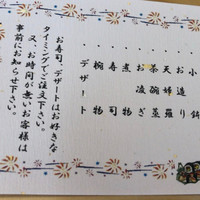 ・小鉢
・お造り
・天婦羅
・茶碗蒸
・お凌ぎ
・煮物
・寿司
・椀物
・デザート
お寿司、デザートはお好きな
タイミングでご注文下さい。
又、お時間が無いお客様は
事前にお知らせ下さい。